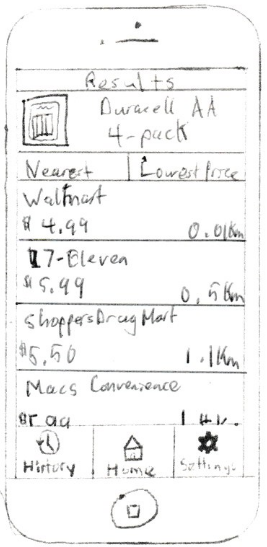 Results
Duracell AA
4-pack
Nearest Lowest Price
Walmart
$4.99 0.01Km
7-Eleven
$5.99 0.5Km
Shoppers Drug Mart
$5.50 1.1Km
Macs Convenience
History Home Settings